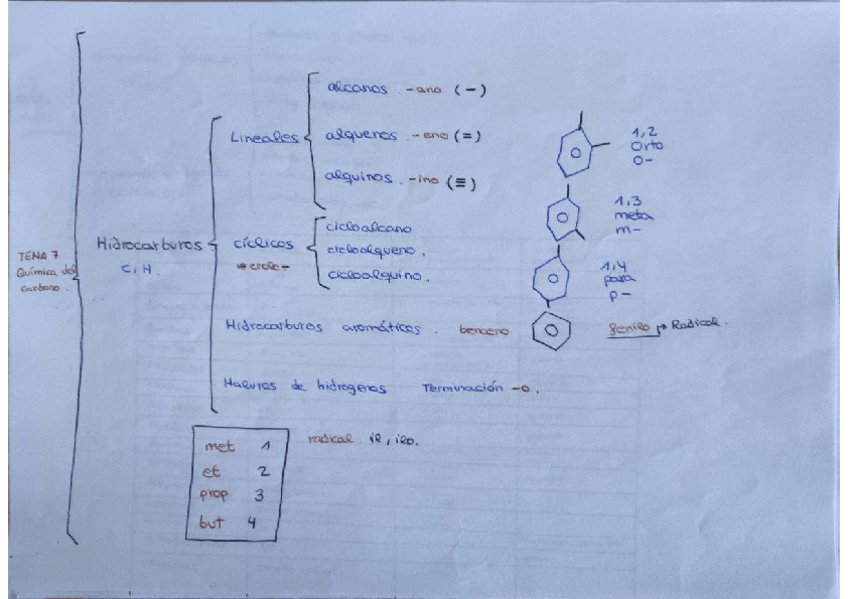 TEMA 7
Química del
carbono.
Hidrocarburos
C, H.
Lineales
alcanos. -ano (-)
alquenos. -eno (=)
alquinos. -ino (≡)
cíclicos
ciclo-
cicloalcano
cicloalqueno.
cicloalquino.
1,2
Orto
O-
1,3
meta
m-
1,4
para
p-
Hidrocarburos aromáticos. benceno
fenilo → Radical.
de hidrogenos Terminación -o.
met 1
et 2
prop 3
but 4
radical il, ilo.